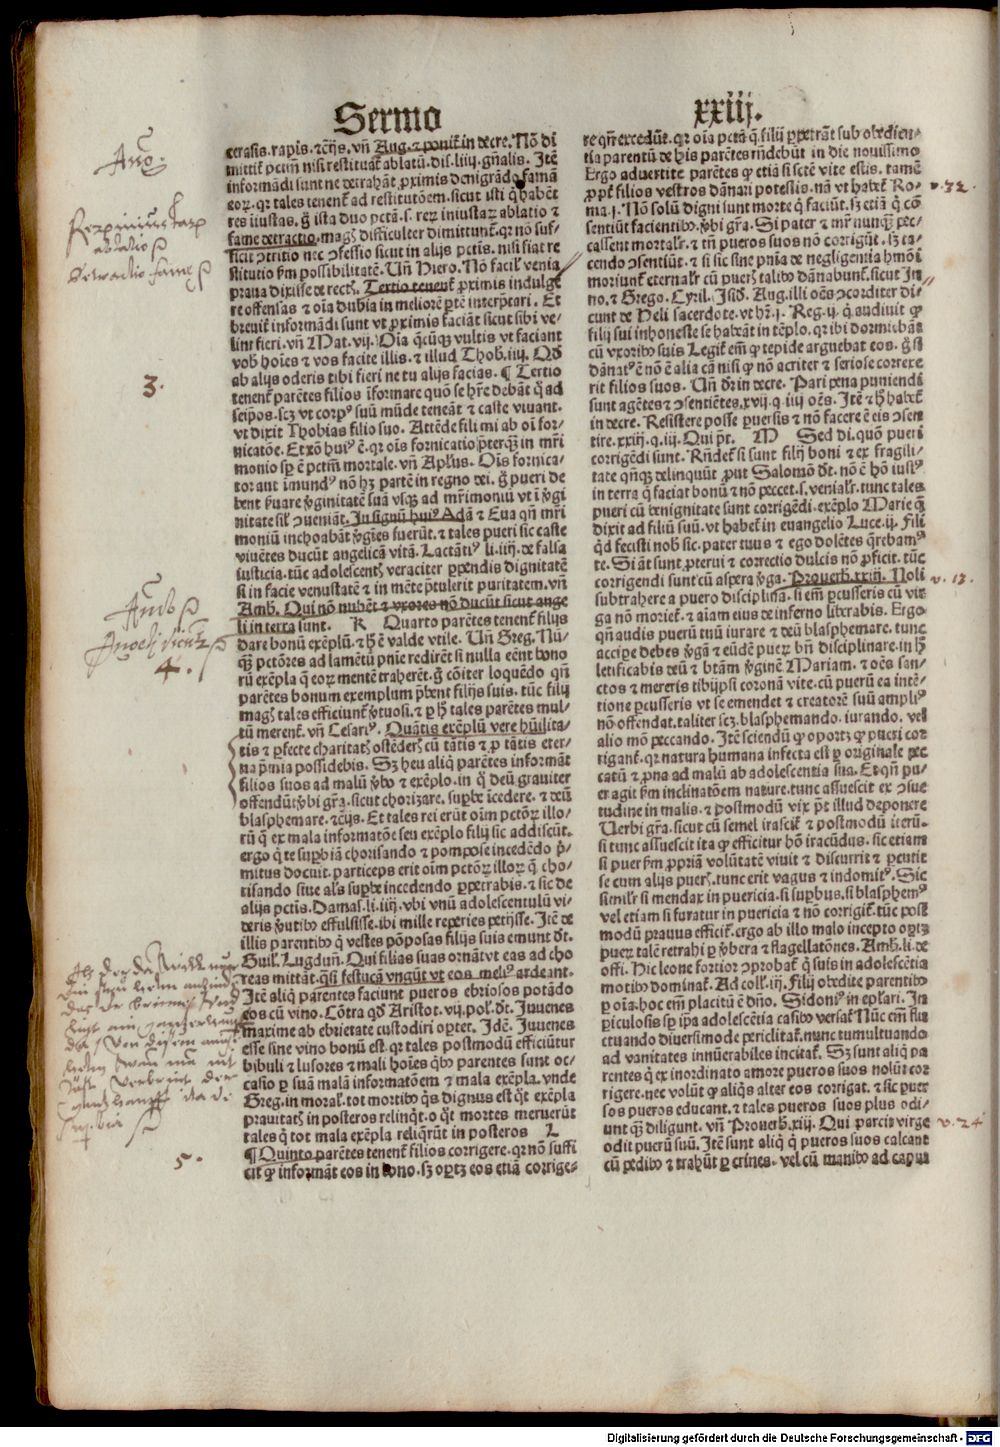 Sermo
xxiij.
cerasis.rapis.⁊cẽtꝭs.vñ Aug.⁊ ponit̃ in decre. Nõ di
mittit̃ pctm̃ nisi restituat̃ ablatũ.dis.liiij.gñalis. Itẽ
informãdi sunt ne detrahãt ꝓximis denigrãdo famã
eoꝝ.qꝛ tales tenent̃ ad restitutõem.sicut isti q̃ habẽt
res iniustas.g̃ ista duo pctã.s. reꝝ iniustaꝝ ablatio ⁊
fame detractio.magꝭ difficulter dimittunt̃.qꝛ nõ suf⸗
ficit ↄtritio nec ↄfessio sicut in alijs pctĩs.nisi fiat re
stitutio ẜm possibilitatẽ. Uñ Hiero. Nõ facil' venia
praua dixisse de rectꝭ. Tertio tenent̃ ꝓximis indulge
re offensas ⁊ oĩa dubia in meliorẽ ꝑtẽ interp̃tari. Et
breuit̃ informãdi sunt vt ꝓximis faciãt sicut sibi ve⸗
lint fieri.vñ Mat.vij. Oĩa q̃cũqꝫ vultis vt faciant
vob̃ hoĩes ⁊ vos facite illis.⁊ illud Thob.iiij. Qd̃
ab alijs oderis tibi fieri ne tu alijs facias. ¶ Tertio
tenent̃ parẽtes filios ĩformare quo se hr̃e debãt q̃ ad
seip̃os.scꝫ vt corpꝰ suũ mũde teneãt ⁊ caste viuant.
vt dixit Thobias filio suo. Attẽde fili mi ab oĩ for⸗
nicatõe. Et rõ huiꝰ ẽ.qꝛ oĩs fornicatio p̃terqꝫ̃ in mr̃i
monio sꝑ ẽ pctm̃ mortale.vñ Apl'us. Oĩs fornica⸗
tor aut ĩmundꝰ nõ hꝫ partẽ in regno dei.g̃ pueri de
bent ꝑuare ꝟginitatẽ suã vsqꝫ ad mr̃imoniũ vt ĩ ꝟgi
nitate sil' ↄueniãt. In signũ huiꝰ Adã ⁊ Eua qñ mr̃i
moniũ inchoabãt ꝟgĩes fuerũt.⁊ tales pueri sic caste
viuẽtes ducũt angelicã vitã. Lactãtiꝰ li.iiij.de falsa
iusticia.tũc adolescentꝭ veraciter ꝑpendis dignitatẽ
si in facie venustatẽ ⁊ in mẽte p̃tulerit puritatem.vñ
Amb. Qui nõ nubẽt ⁊ vxores nõ ducũt sicut ange
li in terra sunt. K Quarto parẽtes tenent̃ filijs
dare bonũ exẽplũ.⁊ h̃ ẽ valde vtile. Uñ Greg. Nũ⸗
qꝫ̃ pctõres ad lamẽtũ pnĩe redirẽt si nulla eẽnt bono
rũ exẽpla q̃ eoꝝ mentẽ traherẽt.g̃ cõiter loquẽdo qñ
parẽtes bonum exemplum p̃bent filijs suis. tũc filij
magꝭ tales efficiunt̃ ꝟtuosi.⁊ ꝑ h̃ tales parẽtes mul⸗
tũ merent̃.vñ Cesariꝰ. Quãtis exẽplũ vere hũilita⸗
tis ⁊ ꝑfecte charitatꝭ ostẽderꝭ cũ tãtis ⁊ ꝓ tãtis eter⸗
na p̃mia possidebis. Sꝫ heu aliq̃ parẽtes informãt
filios suos ad malũ ꝟbo ⁊ exẽplo.in q̃ deũ grauiter
offendũt.ꝟbi gr̃a.sicut chorizare. suꝑbe ĩcedere. ⁊ deũ
blasphemare.⁊cẽtꝭs. Et tales rei erũt oĩm pctõꝝ illo⸗
tũ q̃ ex mala informatõe seu exẽplo filij sic addiscũt.
ergo q̃ te suꝑbiã chorisando ⁊ pompose incedẽdo p̃⸗
mitus docuit.particeps erit oĩm pctõꝝ illoꝝ q̃ cho⸗
risando siue al's suꝑbe incedendo ꝑpetrabis. ⁊ sic de
alijs pctĩs. Damas.li.iiij.vbi vnũ adolescentulũ vi⸗
deris ꝟtutibꝰ effulsisse.ibi mille reperies petijsse. Itẽ de
illis parentibꝰ q̃ vestes põposas filijs suis emunt dt̃.
Guil. Lugduñ. Qui filias suas ornãt vt eas ad cho
reas mittãt.qs̃i festucã vngũt vt eos meliꝰ ardeant.
Itẽ aliq̃ parentes faciunt pueros ebriosos potãdo
eos cũ vino. Cõtra qd̃ Aristot.vij.pol'.dt̃. Iuuenes
maxime ab ebrietate custodiri oꝑtet. Idẽ. Iuuenes
esse sine vino bonũ est.qꝛ tales postmodũ efficiũtur
bibuli ⁊ lusores ⁊ mali hoĩes q̃bꝰ parentes sunt oc⸗
casio ꝑ suã malã informatõem ⁊ mala exẽpla.vnde
Greg.in moral'.tot mortibꝰ q̃s dignus est q̃t exẽpla
prauitatꝭ in posteros relinq̃t.o q̃t mortes meruerũt
tales q̃ tot mala exẽpla reliq̃rũt in posteros L
¶ Quinto parẽtes tenent̃ filios corrigere.qꝛ nõ suffi
cit ꝙ informãt eos in bono.sꝫ oꝑtꝫ eos etiã corrige⸗
re qñ excedũt.qꝛ oĩa pctã q̃ filij ꝑpetrãt sub obedien⸗
tia parentũ de his parẽtes rñdebũt in die nouissimo
Ergo aduertite parẽtes ꝙ etiã si sctẽ vite estis. tamẽ
ꝓpt̃ filios vestros dãnari potestis.nã vt habet̃ Ro⸗
ma.j. Nõ solũ digni sunt morte q̃ faciũt.sꝫ etiã q̃ cõ
sentiũt facientibꝰ.ꝟbi gr̃a. Si pater ⁊ mr̃ nunqꝫ̃ pec⸗
cassent mortalr̃.⁊ tñ pueros suos nõ corrigũt. sꝫ ta⸗
cendo ↄsentiũt.⁊ si sic sine pnĩa de negligentia hmõi
moriunt̃.eternalr̃ cũ puerꝭ talibꝰ dãnabunt̃.sicut In⸗
no.⁊ Grego. Cyril. Isid. Aug.illi oẽs ↄcorditer di⸗
cunt de Heli sacerdote.vt hr̃.j. Reg.ij.q̃ audiuit ꝙ
filij sui inhoneste se habeãt in tẽplo.qꝛ ibi dormiebãt
cũ vxoribꝰ suis Legit̃ em̃ ꝙ tepide arguebat eos.g̃ si
dãnatꝰ ẽ nõ ẽ alia cã nisi ꝙ nõ acriter ⁊ seriose correxe
rit filios suos. Uñ dr̃ in decre. Pari pena puniendi
sunt agẽtes ⁊ ↄsentiẽtes.xvij.q.iiij oẽs. Itẽ ⁊ h̃ habet̃
in decre. Resistere posse ꝑuersis ⁊ nõ facere ẽ eis ↄsen
tire.xxiij.q.iij. Qui p̃t. M Sed di.quõ pueri
corrigẽdi sunt. Rñdet̃ si sunt filij boni ⁊ ex fragili⸗
tate qñqꝫ delinquũt ꝓut Salomõ dt̃.nõ ẽ hõ iustꝰ
in terra q̃ faciat bonũ ⁊ nõ peccet.s.venialr̃.tunc tales
pueri cũ benignitate sunt corrigẽdi.exẽplo Marie q̃
dixit ad filiũ suũ.vt habet̃ in euangelio Luce.ij. Fili
q̃d fecisti nob̃ sic.pater tuus ⁊ ego dolẽtes q̃rebamꝰ
te. Si ãt sunt ꝓterui ⁊ correctio dulcis nõ ꝓficit. tũc
corrigendi sunt cũ aspera ꝟga. Prouerb.xxiij. Noli
subtrahere a puero disciplinã.si em̃ ꝑcusseris cũ vir
ga nõ moriet̃.⁊ aĩam eius de inferno liberabis. Ergo
qñ audis puerũ tuũ iurare ⁊ deũ blasphemare. tunc
accipe debes ꝟgã ⁊ eũdẽ puerꝝ bñ disciplinare.in h̃
letificabis deũ ⁊ btãm ꝟginẽ Mariam. ⁊ oẽs san⸗
ctos ⁊ mereris tibijpsi coronã vite.cũ puerũ ea intẽ⸗
tione ꝑcusseris vt se emendet ⁊ creatorẽ suũ ampliꝰ
nõ offendat.taliter scꝫ.blasphemando.iurando. vel
alio mõ peccando. Itẽ sciendũ ꝙ oportꝫ ꝙ pueri cor
rigant̃.qꝛ natura humana infecta est ꝑ originale pec
catũ ⁊ ꝓna ad malũ ab adolescentia sua. Et qñ pu⸗
er agit ẜm inclinatõem nature.tunc assuescit ex ↄsue
tudine in malis.⁊ postmodũ vix p̃t illud deponere
Uerbi gr̃a.sicut cũ semel irascit̃ ⁊ postmodũ iterũ.
si tunc assuescit ita ꝙ efficitur hõ iracũdus. sic etiam
si puer ẜm ꝓpriã volũtatẽ viuit ⁊ discurrit ⁊ ꝑcutit
se cum alijs puerꝭ.tunc erit vagus ⁊ indomitꝰ. Sic
similr̃ si mendax in puericia.si suꝑbus.si blasphemꝰ
vel etiam si furatur in puericia ⁊ nõ corrigit̃. tũc post
modũ prauus efficit̃.ergo ab illo malo incepto oꝑtꝫ
puerꝝ talẽ retrahi ꝑ ꝟbera ⁊ flagellatõnes. Amb.li.de
offi. Hic leone fortior ↄprobat̃ q̃ suis in adolescẽtia
motibꝰ dominat̃. Ad coll'.iij. Filij obedite parentibꝰ
ꝑ oĩa.hoc em̃ placitũ ẽ dño. Sidoniꝰ in epl'ari. In
ꝑiculosis sꝑ ip̃a adolescẽtia casibꝰ versat̃ Nũc em̃ flu
ctuando diuersimode periclitat̃.nunc tumultuando
ad vanitates innũerabiles incitat̃. Sꝫ sunt aliq̃ pa
rentes q̃ ex inordinato amore pueros suos nolũt cor
rigere.nec volũt ꝙ aliq̃s alter eos corrigat.⁊ sic puer
sos pueros educant.⁊ tales pueros suos plus odi⸗
unt qꝫ̃ diligunt. vñ Prouerb.xiij. Qui parcit virge
odit puerũ suũ. Itẽ sunt aliq̃ q̃ pueros suos calcant
cũ pedibꝰ ⁊ trahũt ꝑ crines.vel cũ manibꝰ ad caput
3.
4.
5.
v. 32.
v. 13.
v. 24
Digitalisierung gefördert durch die Deutsche Forschungsgemeinschaft - DFG